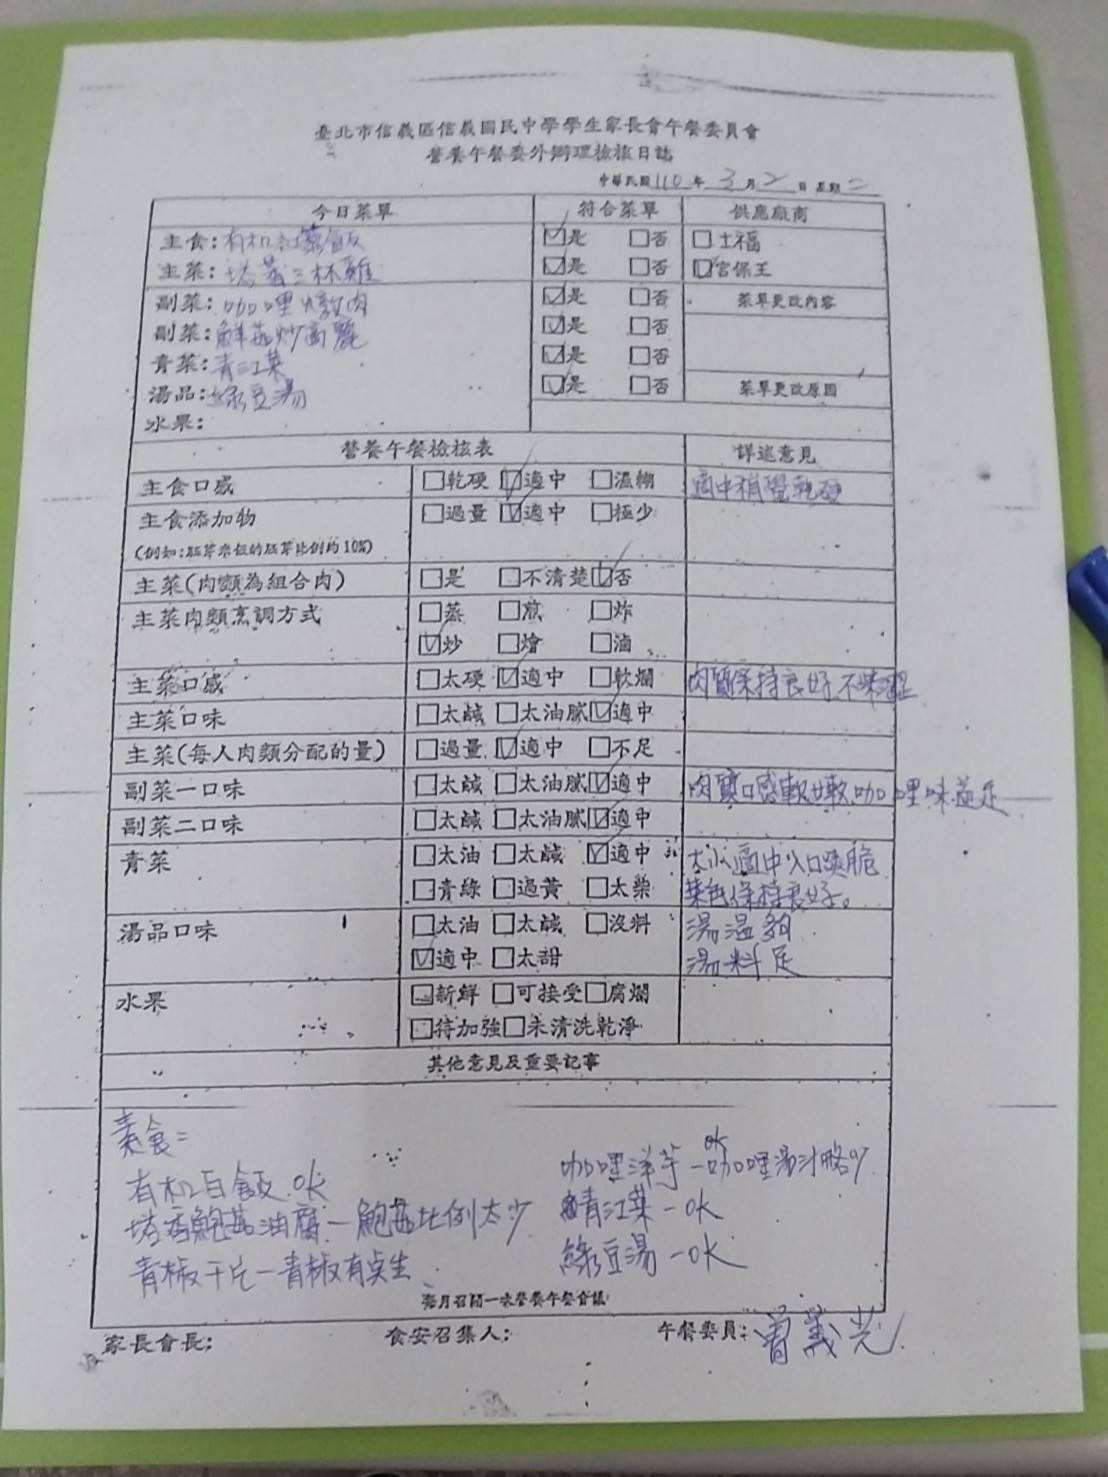 臺北市信義區信義國民中學學生家長會午餐委員會
營養午餐委外辦理檢核日誌
中華民國110年3月2日 星期二
今日菜單 符合菜單 供應廠商
主食:有机紅藜飯 ☑是 □否 □士福
主菜:塔香三杯雞 ☑是 □否 ☑宮保王
副菜:咖哩燉肉 ☑是 □否 菜單更改內容
副菜:鮮菇炒高麗 ☑是 □否
青菜:青江菜 ☑是 □否
湯品:綠豆湯 ☑是 □否 菜單更改原因
水果:
營養午餐檢核表 詳述意見
主食口感 □乾硬 ☑適中 □濕糊 適中稍覺乾硬
主食添加物 □過量 ☑適中 □極少
(例如:胚芽米飯的胚芽比例約10%)
主菜(肉類為組合肉) □是 □不清楚 ☑否
主菜肉類烹調方式 □蒸 □煎 □炸
☑炒 □燴 □滷
主菜口感 □太硬 ☑適中 □軟爛 肉質保持良好不
主菜口味 □太鹹 □太油膩 ☑適中
主菜(每人肉類分配的量) □過量 ☑適中 □不足
副菜一口味 □太鹹 □太油膩 ☑適中 肉質口感軟嫩咖哩味道足
副菜二口味 □太鹹 □太油膩 ☑適中
青菜 □太油 □太鹹 ☑適中 大小適中入口爽脆
□青綠 □過黃 □太柴 菜色保持良好。
湯品口味 □太油 □太鹹 □沒料 湯溫夠
☑適中 □太甜 湯料足
水果 □新鮮 □可接受 □腐爛
□待加強 □未清洗乾淨
其他意見及重要記事
素食=
有机白飯 ok
塔香鮑菇油腐-鮑菇比例太少
青椒干片-青椒有点生
咖哩洋芋-ok 咖哩湯汁略少
青江菜-ok
綠豆湯-ok
每月召開一次營養午餐會議
家長會長: 食安召集人: 午餐委員:曾義芳